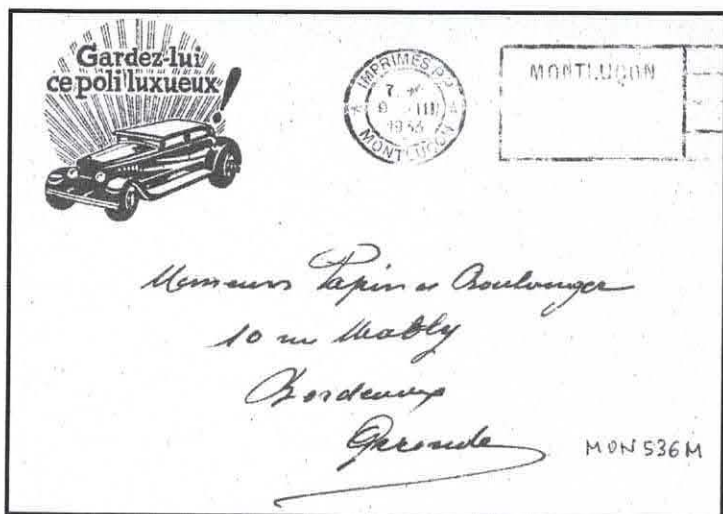 Gardez-lui
ce poli luxueux !
IMPRIMÉS P.P.
7
9 III
1934
MONTLUÇON
MONTLUÇON
Messieurs Papin & Boulanger
10 rue Mably
Bordeaux
Gironde
MON536M